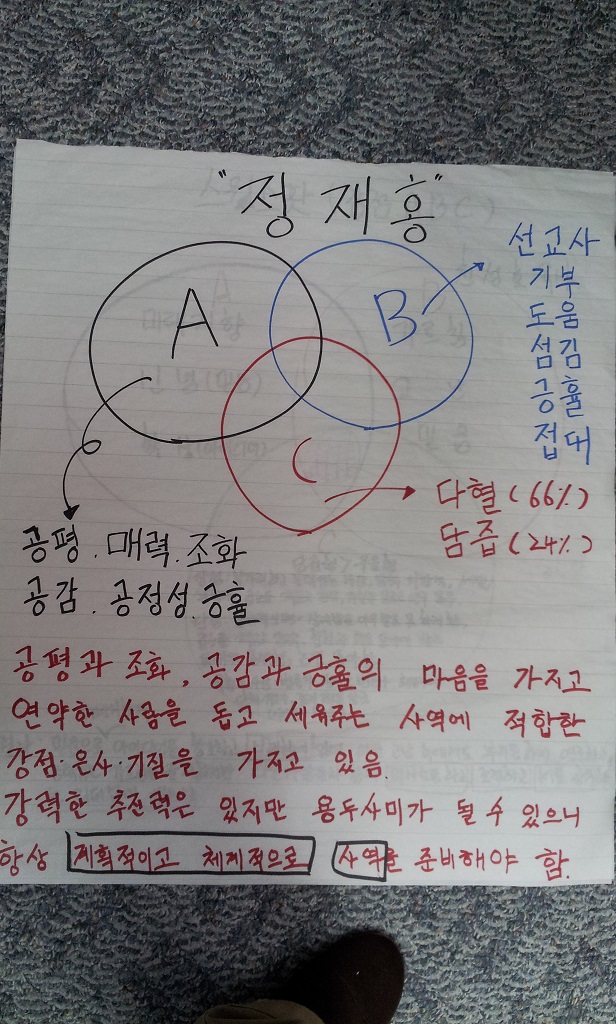 "정재홍"
A
B
C
선교사
기부
도움
섬김
긍휼
접대
다혈(66%)
담즙(24%)
공평.매력.조화
공감.공정성.긍휼
공평과 조화, 공감과 긍휼의 마음을 가지고
연약한 사람을 돕고 세워주는 사역에 적합한
강점·은사·기질을 가지고 있음.
강력한 추진력은 있지만 용두사미가 될 수 있으니
항상 계획적이고 체계적으로 사역을 준비해야 함.